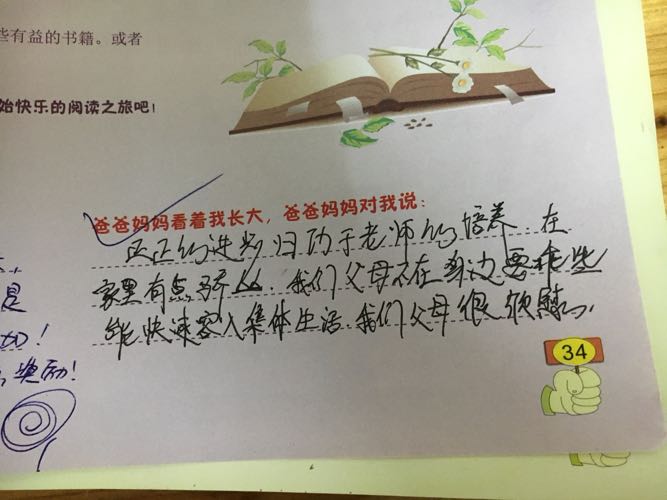 些有益的书籍。或者
始快乐的阅读之旅吧!
爸爸妈妈看着我长大,爸爸妈妈对我说:
的进步归功于老师的培养 在
家里有点骄 . 我们父母不在身边要 些
能快速容入集体生活.我们父母很欣慰.
是
!
奖励!
34